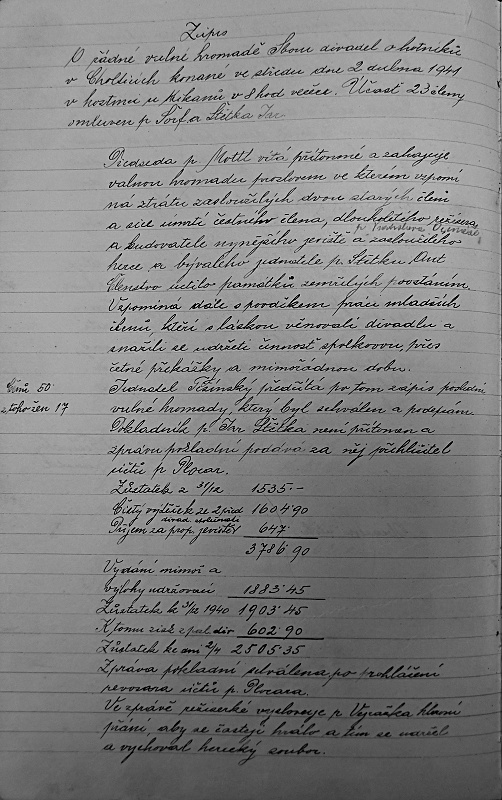 Zápis
O řádné valné hromadě Sboru divadel. ochotníků
v Cholticích konané ve středu dne 2 dubna 1941
v hostinci u Mikanů v 8 hod večer. Účast 23 členů
omluven p. Šorf. a Stětka Jar.
Předseda p. Mottl vítá přítomné a zahajuje
valnou hromadu proslovem ve kterém vzpomí
ná ztrátu zasloužilých dvou starých členů
a sice úmrtí čestného člena, dlouholetého režiséra
p.
a budovatele nynějšího jeviště a zasloužilého
herce a bývalého jednatele p. Stětku
Členstvo uctilo památku zemřelých povstáním.
Vzpomíná dále s povděkem práce mladších
členů kteří s láskou věnovali divadlu a
snažili se udržeti činnost spolkovou, přes
četné překážky a mimořádnou dobu.
členů 50
z toho žen 17
Jednatel Tížinský předčítá po tom zápis poslední
valné hromady, který byl schválen a podepsán
Pokladník p. Jar Stětka není přítomen a
zprávu pokladní podává za něj přehlížitel
účtů p. Plocar.
Zůstatek z 31/12 1535.-
Čistý výtěžek ze 2 před 1604·90
divad. společnosti
Příjem za prop. jeviště 647·
3786·90
Vydání mimoř a
výlohy udržovací 1883·45
Zůstatek k 31/12 1940 1903·45
K tomu zisk z posl div 602·90
Zůstatek ke dni 2/4 2505·35
Zpráva pokladní schválena po prohlášení
revisora účtů p. Plocara.
Ve zprávě režisérské vyslovuje p. Vyražka hlavní
přání, aby se častěji hrálo a tím se udržel
a vychoval herecký soubor.